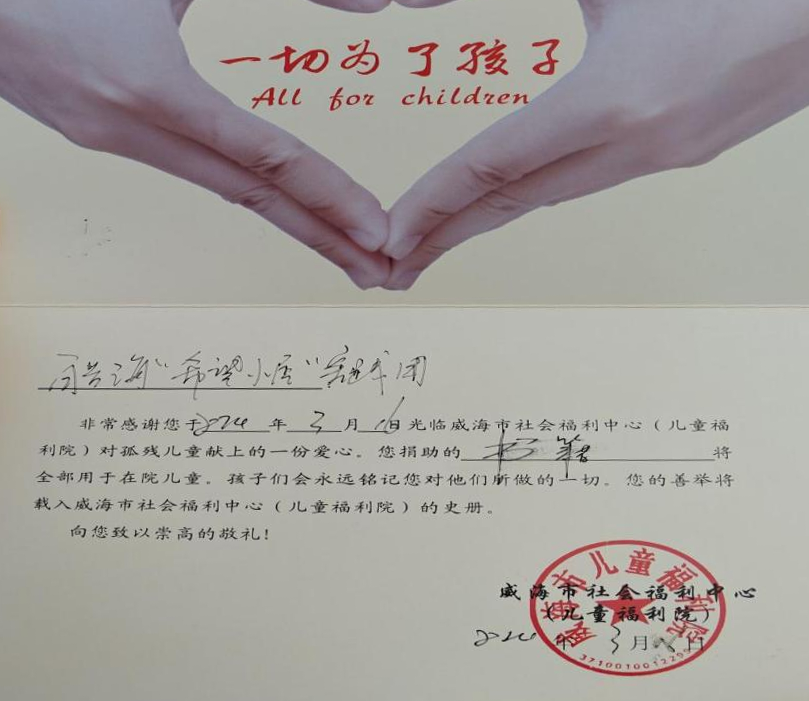 一切为了孩子
All for children
"希望小屋"
非常感谢您于2024年3月16日光临威海市社会福利中心（儿童福
利院）对孤残儿童献上的一份爱心。您捐助的书籍将
全部用于在院儿童。孩子们会永远铭记您对他们所做的一切。您的善举将
载入威海市社会福利中心（儿童福利院）的史册。
向您致以崇高的敬礼！
威海市儿童福利院
威海市社会福利中心
（儿童福利院）
2024年3月日